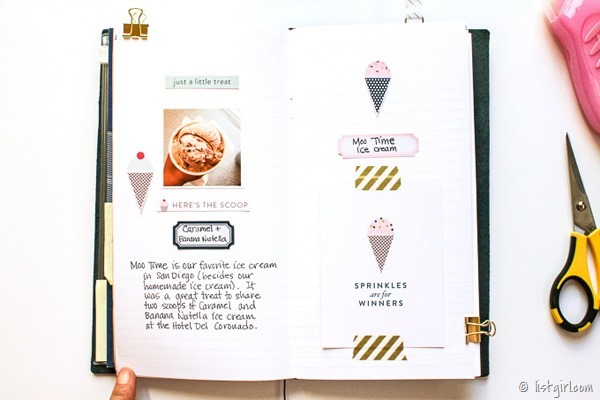 just a little treat
HERE'S THE SCOOP
Caramel +
Banana Nutella
Moo Time is our favorite ice cream
in San Diego (besides our
homemade ice cream). It
was a great treat to share
two scoops of Caramel and
Banana Nutella Ice cream
at the Hotel Del Coronado.
Moo Time
Ice cream
SPRINKLES
are for
WINNERS
© listgirl.com